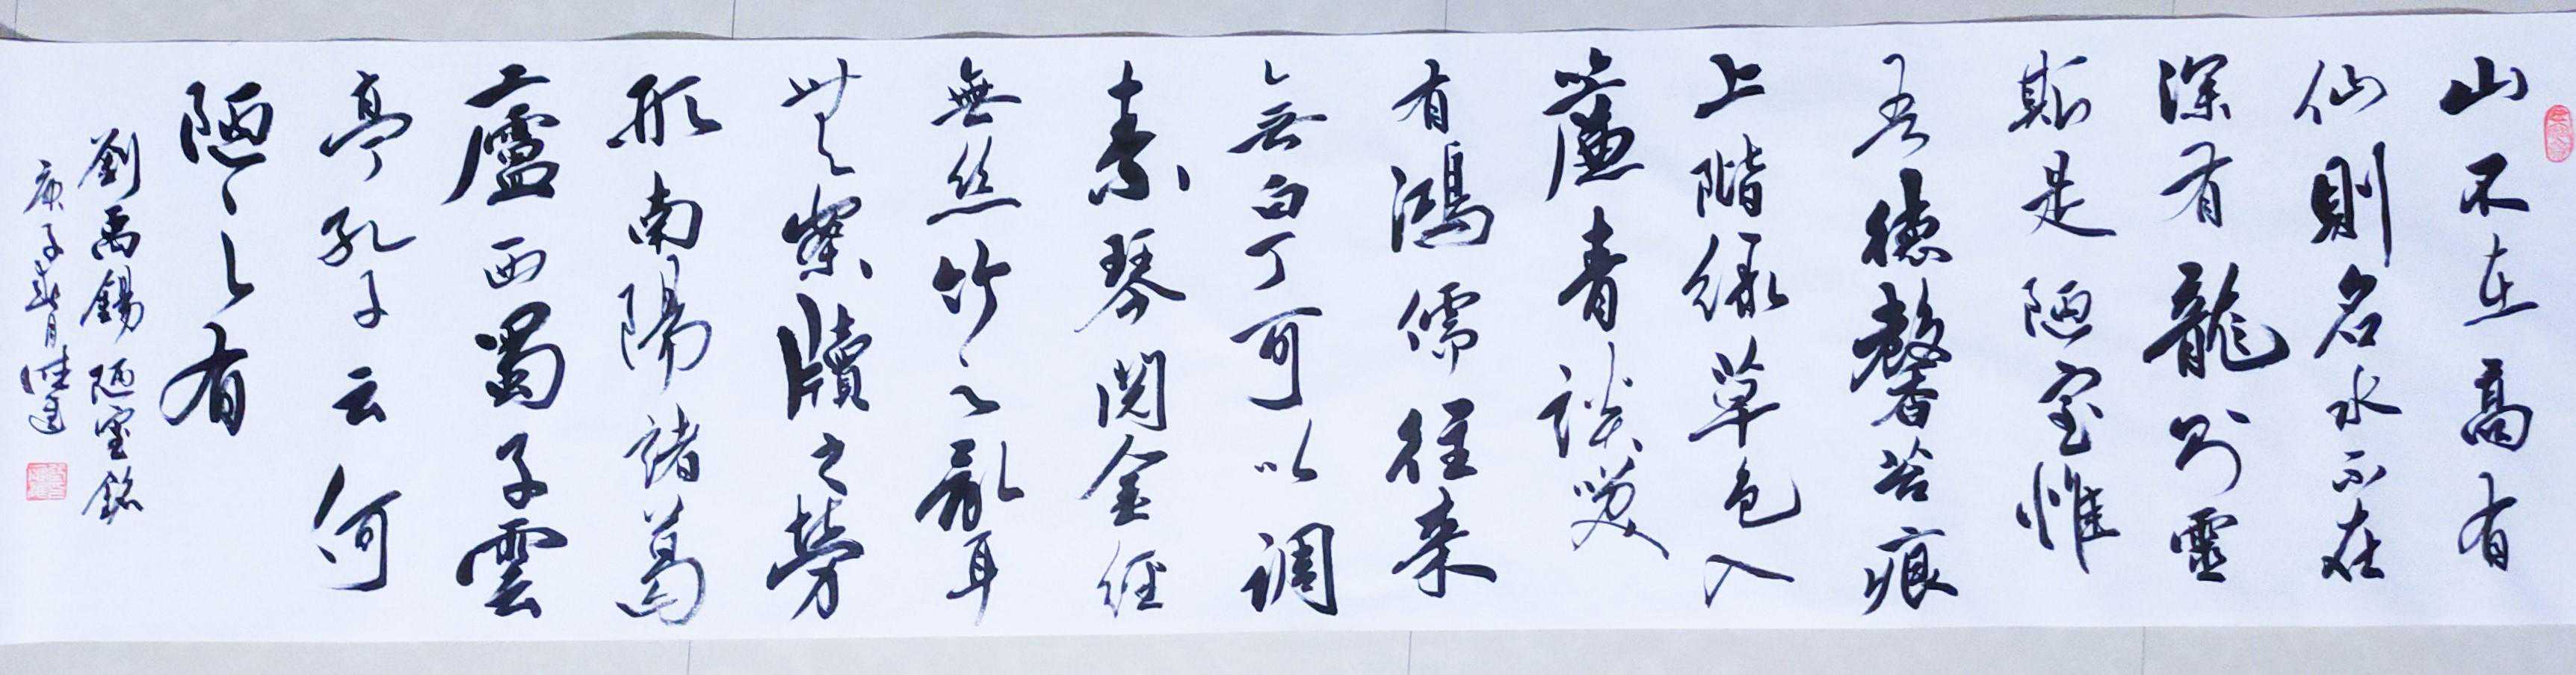 山不在高有
仙則名水不在
深有龍則靈
斯是陋室惟
吾德馨苔痕
上階綠草色入
簾青談笑
有鴻儒往来
無白丁可以调
素琴閲金經
無丝竹之亂耳
無案牘之勞
形南陽諸葛
廬西蜀子雲
亭孔子云何
陋之有
劉禹錫陋室銘
庚子春月